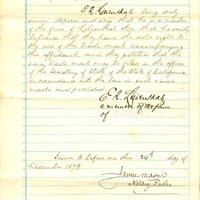 E. R. Lilienthal being duly
sworn deposes and says that he is a member
of the firm of Lilienthal &co that he verily
believes that they have the sole right to
the use of the trade mark accompanying
this affidavit and they petition that the
same trade mark may be filed in the office
of the Secretary of State of the State of California
in accordance with the law in such cases
made and provided
E. R. Lilienthal
a member of the firm
of
Sworn to before me this 24th day of
December 1879
James Mason
Notary Public